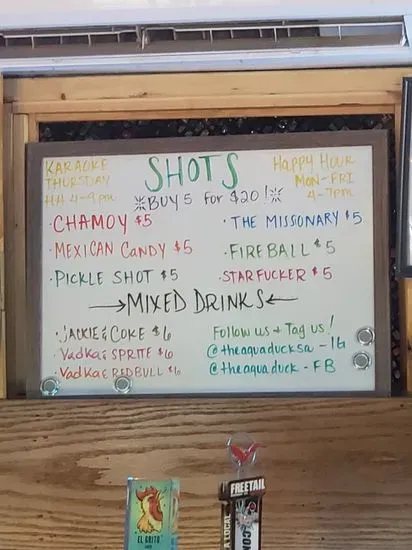 SHOTS
KARAOKE
THURSDAY
HH 4-9pm
HAPPY HOUR
MON-FRI
4-7pm
BUY 5 for $20!
·CHAMOY $5
·THE MISSONARY $5
·MEXICAN CANDY $5
·FIREBALL $5
·PICKLE SHOT $5
·STARFUCKER $5
→MIXED DRINKS←
·JACKIE & COKE $6
·Vodka & SPRITE $6
·Vodka & REDBULL $6
Follow us + Tag us!
@theaquaducksa - IG
@theaquaduck - FB
EL GRITO
FREETAIL
LOCAL